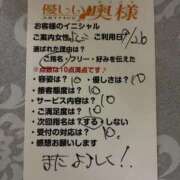 優しい奥様
お客様のイニシャル
ご案内女性 ご利用日7/26
選ばれた理由は？
ご指名・フリー・好みを伝えた
※点数は10点満点です♥
・容姿は？ 10 ・優しさは？ 10
・接客態度は？ 10
・サービス内容は？ 10
・ご満足度は？ 10
・次回指名は？する しない
・受付の対応は？ 10
・感想お願いします
またよろしく！